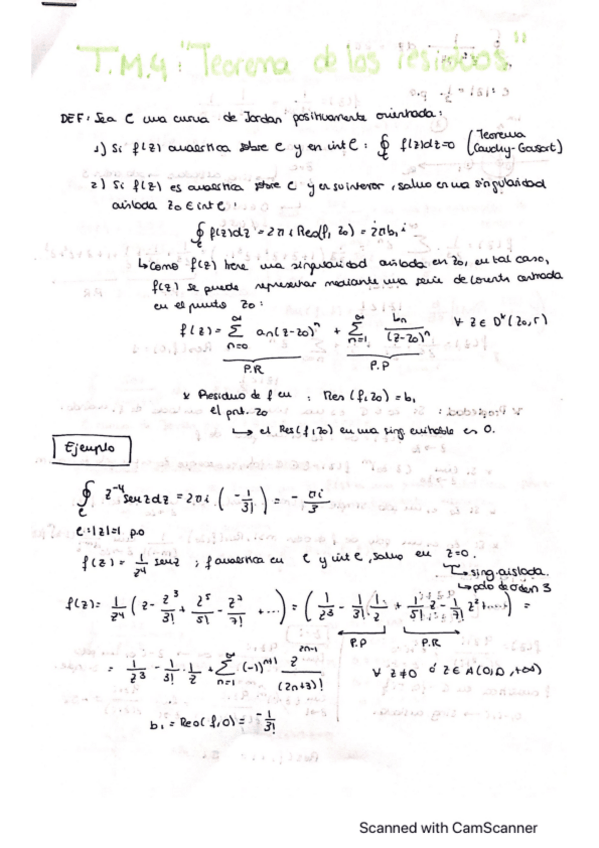 T.M.4: "Teorema de los residuos"
DEF: Sea C una curva de Jordan positivamente orientada:
1) Si f(z) analítica sobre C y en int C : ∮_C f(z)dz=0 (Teorema Cauchy-Goursat)
2) Si f(z) es analítica sobre C y en su interior, salvo en una singularidad
aislada z₀ ∈ int C :
∮_C f(z)dz = 2πi Res(f, z₀) = 2πb₁ i
↳ Como f(z) tiene una singularidad aislada en z₀, en tal caso,
f(z) se puede representar mediante una serie de Laurents centrada
en el punto z₀ :
f(z) = ∑_{n=0}^{∞} an(z-z₀)^n + ∑_{n=1}^{∞} bn/(z-z₀)^n ∀ z ∈ D*(z₀,r)
P.R P.P
* Residuo de f en : Res (f,z₀) = b₁
el pnt. z₀
↳ el Res(f,z₀) en una sing evitable es 0.
Ejemplo
∮_C z⁻⁴ senz dz = 2πi · (-1/3!) = - πi/3
C=|z|=1 p.o
f(z) = 1/z⁴ senz ; f analítica en C y int C, salvo en z=0.
↳ sing. aislada.
↳ polo de orden 3
f(z) = 1/z⁴ (z - z³/3! + z⁵/5! - z⁷/7! + ...) = (1/z³ - 1/3! · 1/z + 1/5! z - 1/7! z³ + ....) =
P.P P.R
= 1/z³ - 1/3! · 1/z + ∑_{n=1}^{∞} (-1)^{n+1} z^{2n-1}/(2n+3)! ∀ z≠0 ó z ∈ A(0,0,+∞)
b₁ = Res(f,0) = -1/3!
Scanned with CamScanner